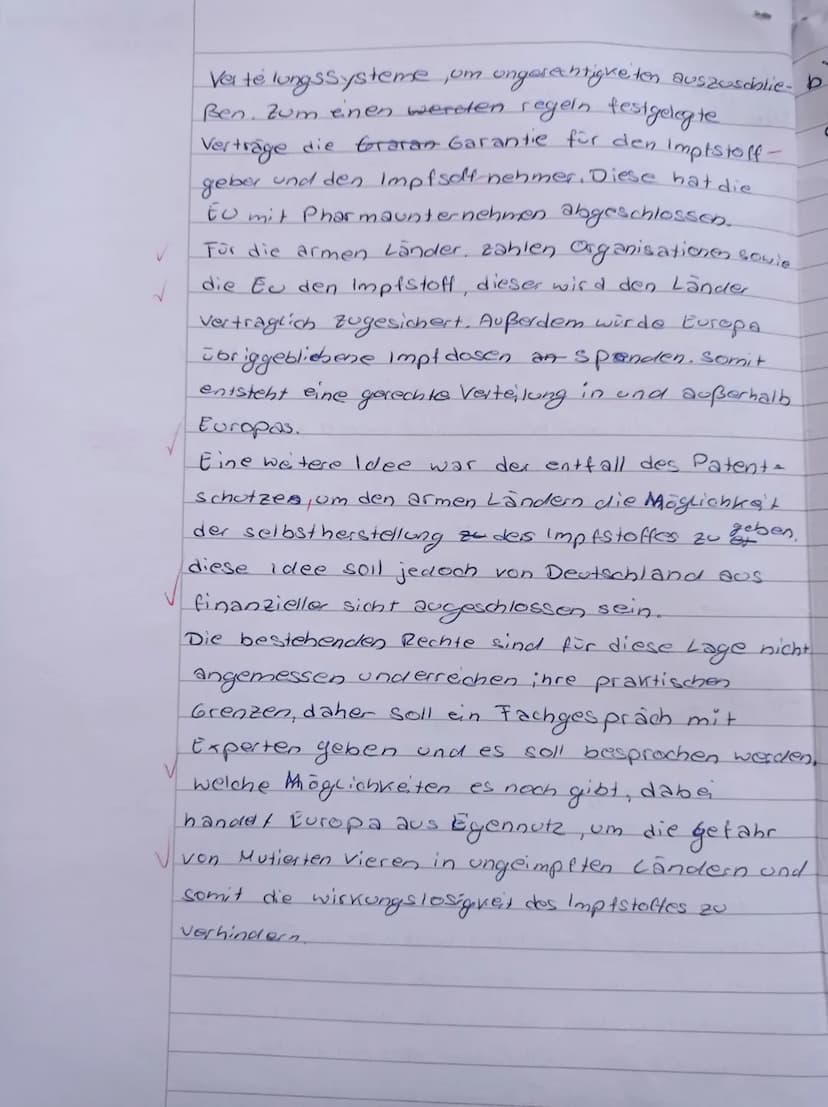 Verteilungssysteme, um ungerechtigkeiten auszuschlie-
ßen. Zum einen werden regeln festgelegte
Verträge die Graran Garantie für den Impfstoff-
geber und den Impfsoff-nehmer. Diese hat die
EU mit Pharmaunternehmen abgeschlossen.
Für die armen Länder. zahlen Organisationen sowie
die Eu den Impfstoff, dieser wird den Länder
vertraglich zugesichert. Außerdem würde Europa
übriggebliebene Impfdosen an spenden. somit
entsteht eine gerechte Verteilung in und außerhalb
Europas.
Eine weitere Idee war der entfall des Patent-
schutzes, um den armen Ländern die Möglichkeit
der selbstherstellung zu des Impfstoffes zu geben.
diese idee soll jedoch von Deutschland aus
finanzieller sicht augeschlossen sein.
Die bestehenden Rechte sind für diese Lage nicht
angemessen underreichen ihre praktischen
Grenzen, daher soll ein Fachgespräch mit
Experten geben und es soll besprochen werden,
welche Möglichkeiten es noch gibt, dabei
handelt Europa aus Egennutz, um die gefahr
von Mutierten vieren in ungeimpften Ländern und
somit die wirkungslosigkeit des Impfstoffes zu
verhindern.